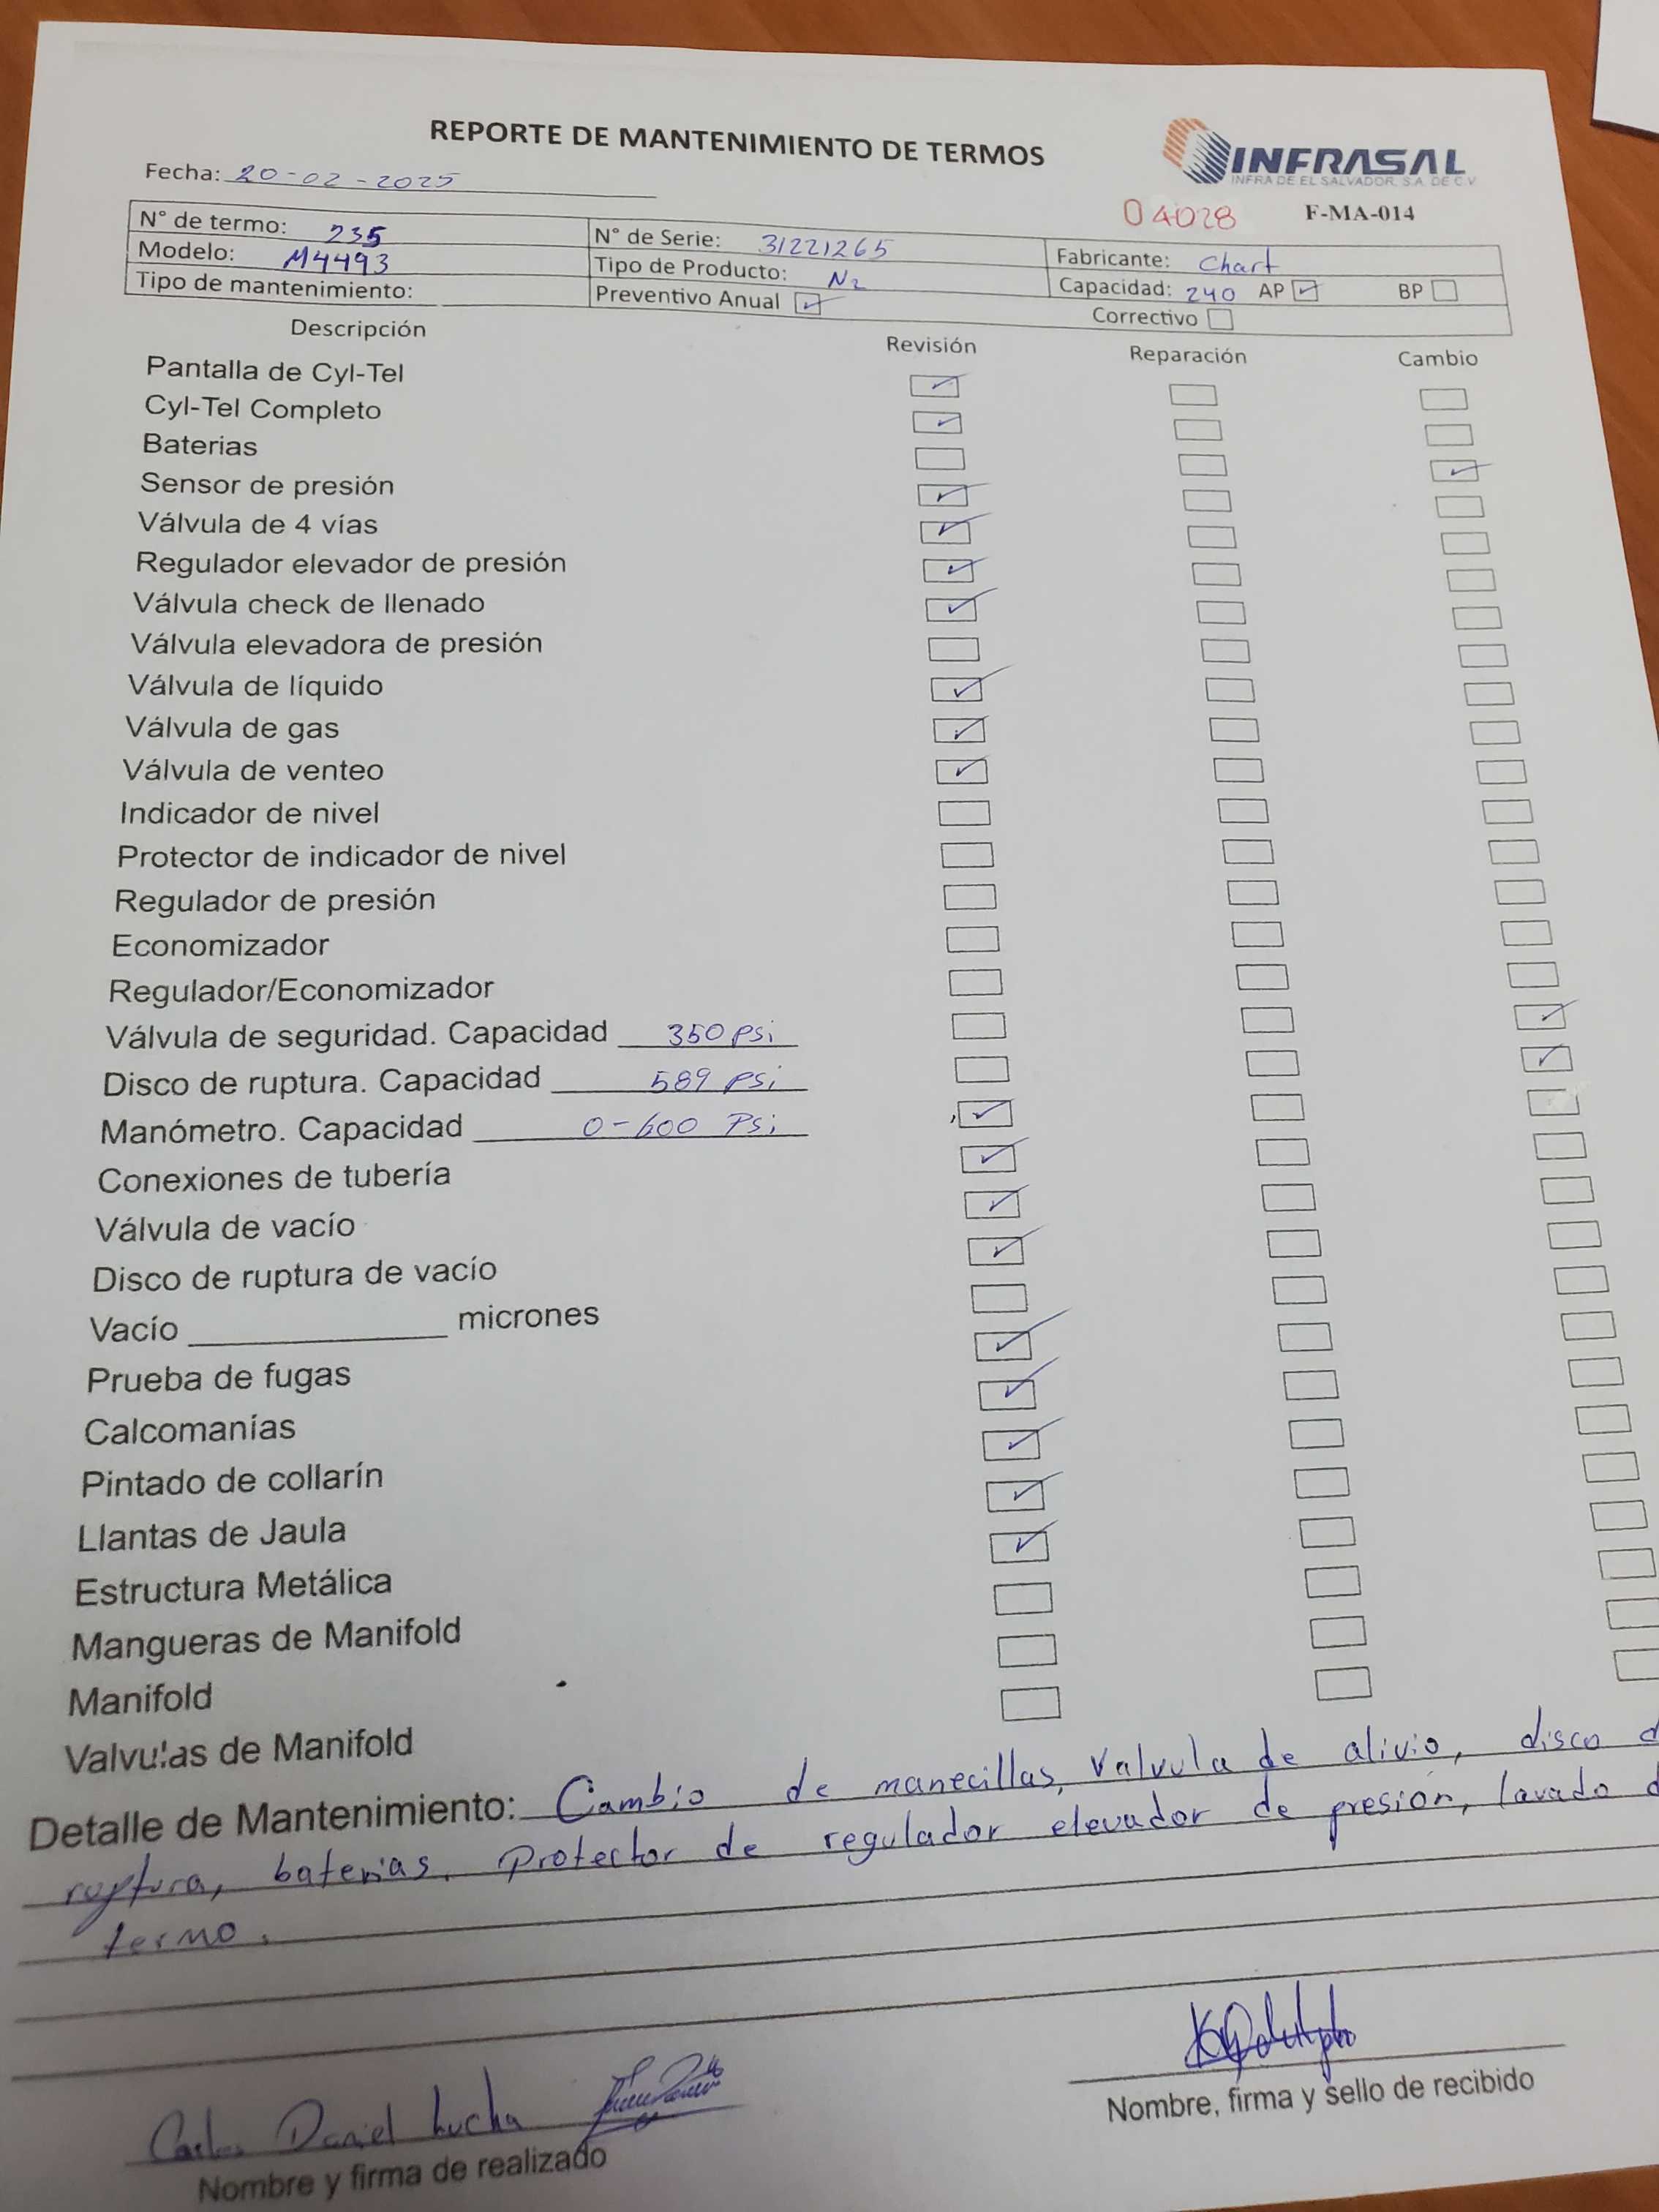 REPORTE DE MANTENIMIENTO DE TERMOS
INFRASAL
INFRA DE EL SALVADOR, S.A. DE C.V
Fecha: 20-02-2025
04028 F-MA-014
N° de termo: 235 N° de Serie: 31221265 Fabricante: Chart
Modelo: M4493 Tipo de Producto: N2 Capacidad: 240 AP ☑ BP ☐
Tipo de mantenimiento: Preventivo Anual ☑ Correctivo ☐
Descripción Revisión Reparación Cambio
Pantalla de Cyl-Tel ☑ ☐ ☐
Cyl-Tel Completo ☑ ☐ ☐
Baterias ☐ ☐ ☑
Sensor de presión ☑ ☐ ☐
Válvula de 4 vías ☑ ☐ ☐
Regulador elevador de presión ☑ ☐ ☐
Válvula check de llenado ☑ ☐ ☐
Válvula elevadora de presión ☐ ☐ ☐
Válvula de líquido ☑ ☐ ☐
Válvula de gas ☑ ☐ ☐
Válvula de venteo ☑ ☐ ☐
Indicador de nivel ☐ ☐ ☐
Protector de indicador de nivel ☐ ☐ ☐
Regulador de presión ☐ ☐ ☐
Economizador ☐ ☐ ☐
Regulador/Economizador ☐ ☐ ☐
Válvula de seguridad. Capacidad 350 psi ☐ ☐ ☑
Disco de ruptura. Capacidad 589 psi ☐ ☐ ☑
Manómetro. Capacidad 0-600 Psi ☑ ☐ ☐
Conexiones de tubería ☑ ☐ ☐
Válvula de vacío ☑ ☐ ☐
Disco de ruptura de vacío ☑ ☐ ☐
Vacío ____ micrones ☐ ☐ ☐
Prueba de fugas ☑ ☐ ☐
Calcomanías ☑ ☐ ☐
Pintado de collarín ☑ ☐ ☐
Llantas de Jaula ☑ ☐ ☐
Estructura Metálica ☑ ☐ ☐
Mangueras de Manifold ☐ ☐ ☐
Manifold ☐ ☐ ☐
Valvulas de Manifold ☐ ☐ ☐
Detalle de Mantenimiento: Cambio de manecillas, Valvula de alivio, disco d
ruptura, baterias, Protector de regulador elevador de presion, lavado d
termo.
Carlos Daniel
Nombre y firma de realizado
Nombre, firma y sello de recibido